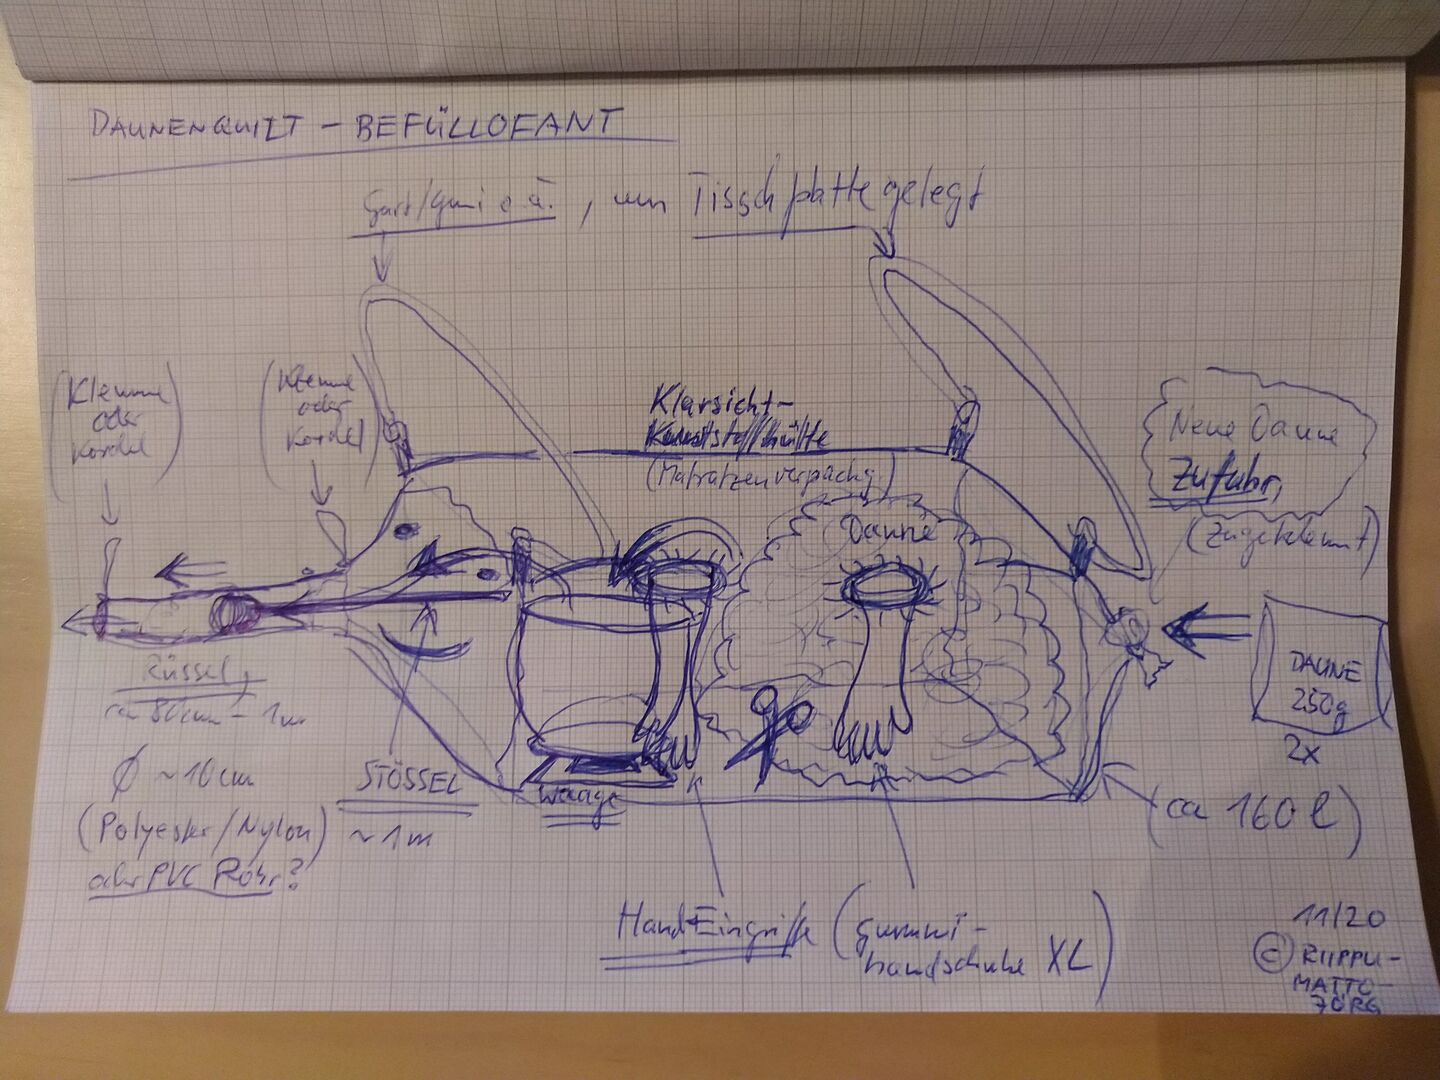 DAUNENQUILT – BEFÜLLOFANT
Gurt/Gummi o.ä., um Tischplatte gelegt
(Klemme
oder
Kordel)
(Klemme
oder
Kordel)
Klarsicht-
Kunststoffhülle
(Matratzenverpackg.)
Neue Daune
Zufuhr,
(zugeklemmt)
Daune
DAUNE
250g
2x
Rüssel,
ca 80cm – 1m
Ø ~10cm
(Polyester/Nylon)
oder PVC Rohr?
STÖSSEL
~1m
Waage
(ca 160 l)
Hand-Eingriffe (Gummi-
handschuhe XL)
11/20
© RIIPPU-
MATTO-
JÖRG